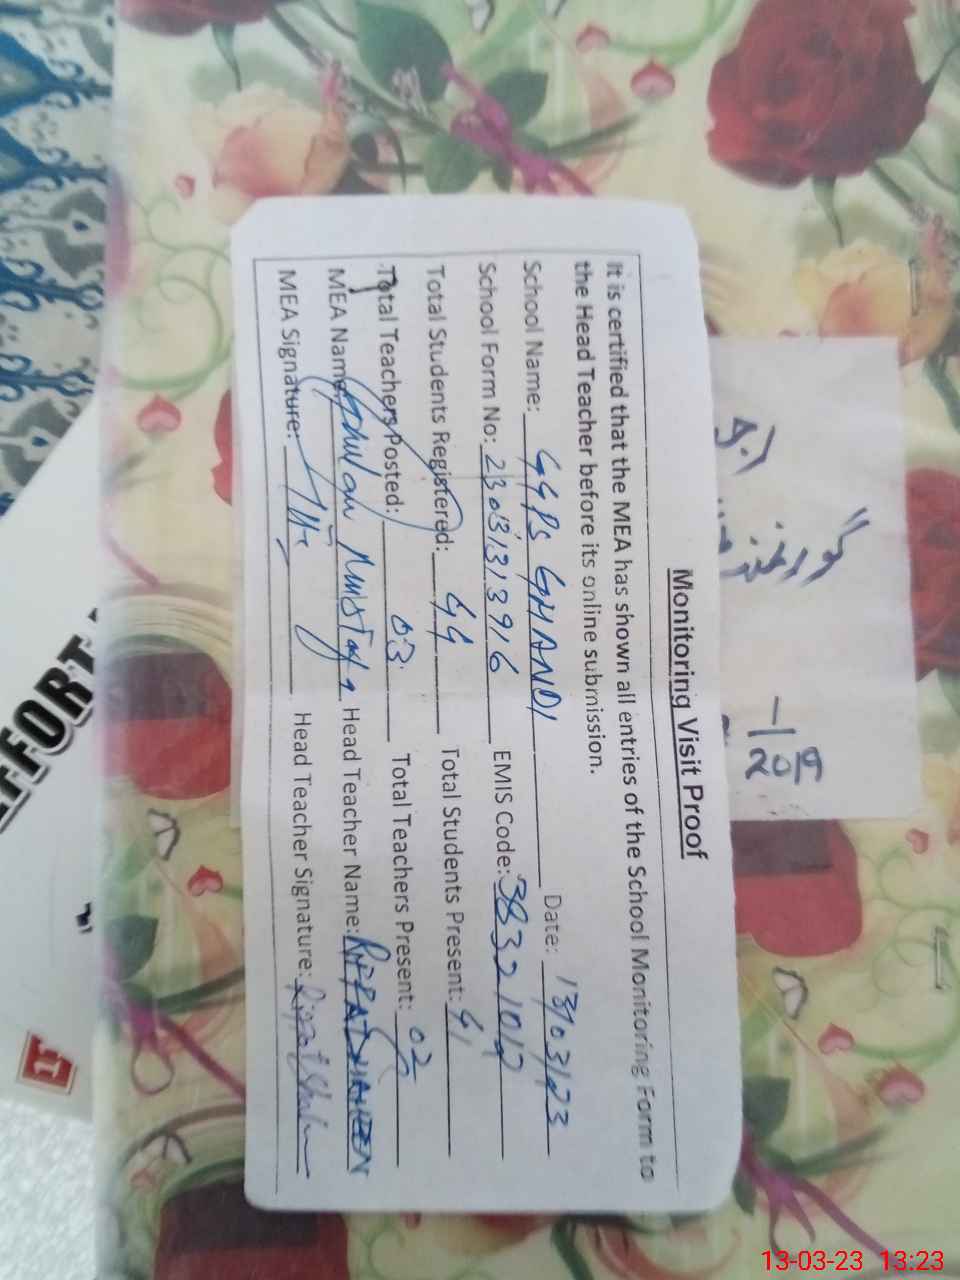 Monitoring Visit Proof
It is certified that the MEA has shown all entries of the School Monitoring Form to
the Head Teacher before its online submission.
School Name: GGPS GHANDI Date: 13/03/23
School Form No: 2303131 3916 EMIS Code: 38321012
Total Students Registered: 44 Total Students Present: 41
Total Teachers Posted: 03 Total Teachers Present: 02
MEA Name: Ghulam Mustafa Head Teacher Name: RIFFAT SHAHEEN
MEA Signature: Head Teacher Signature:
2019
EFFORT
13-03-23 13:23